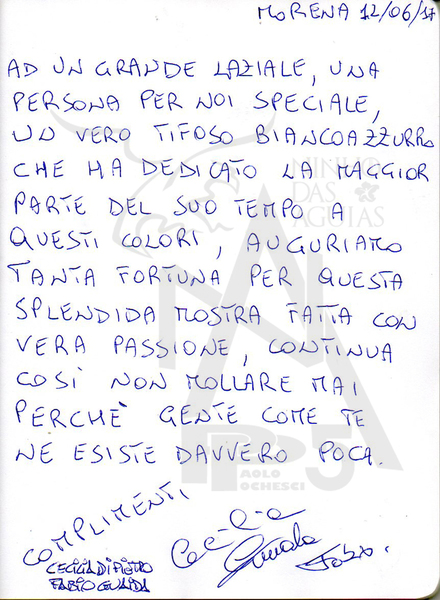 MORENA 12/06/17
AD UN GRANDE LAZIALE, UNA
PERSONA PER NOI SPECIALE,
UN VERO TIFOSO BIANCOAZZURRO
CHE HA DEDICATO LA MAGGIOR
PARTE DEL SUO TEMPO A
QUESTI COLORI, AUGURIAMO
TANTA FORTUNA PER QUESTA
SPLENDIDA MOSTRA FATTA CON
VERA PASSIONE, CONTINUA
COSÌ NON MOLLARE MAI
PERCHÈ GENTE COME TE
NE ESISTE DAVVERO POCA.
COMPLIMENTI
CECILIA DI PIETRO
FABIO
Cecilia
Fabio
NINHO
DAS
AGUIAS
PP5
PAOLO